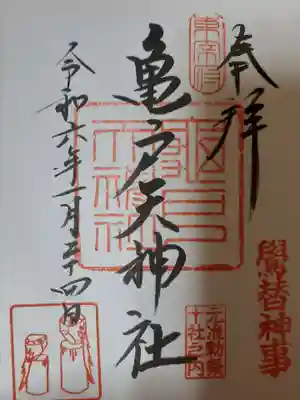 奉拝
鷽替神事
東宰府
亀戸天神社
亀戸
天神社
元准勅祭
十社之内
令和六年一月二十四日